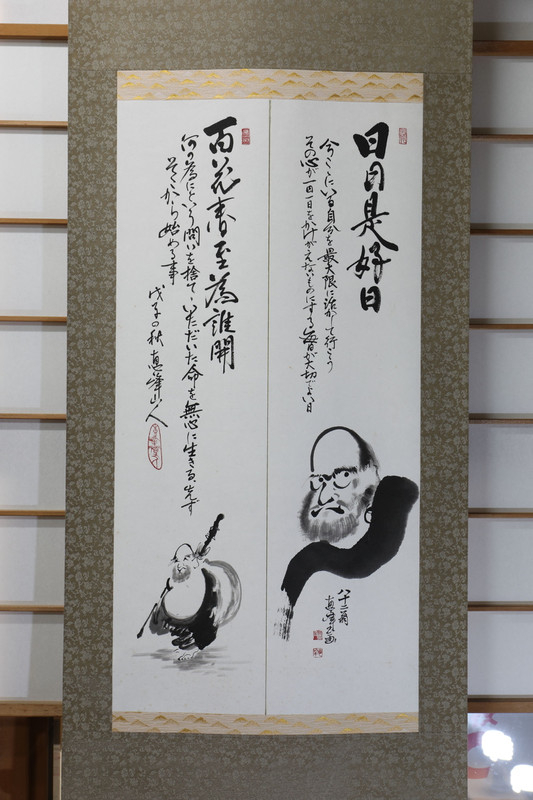 日日是好日
今ここにいる自分を最大限に活かして行こう
その心が一日一日をかけがえないものにする毎日が大切でよい日
八十二翁
恵峰ゑ画
百花春至為誰開
何の為にという問いを捨て、いただいた命を無心に生きる先ず
そこから始める事
戊子の秋 恵峰山人